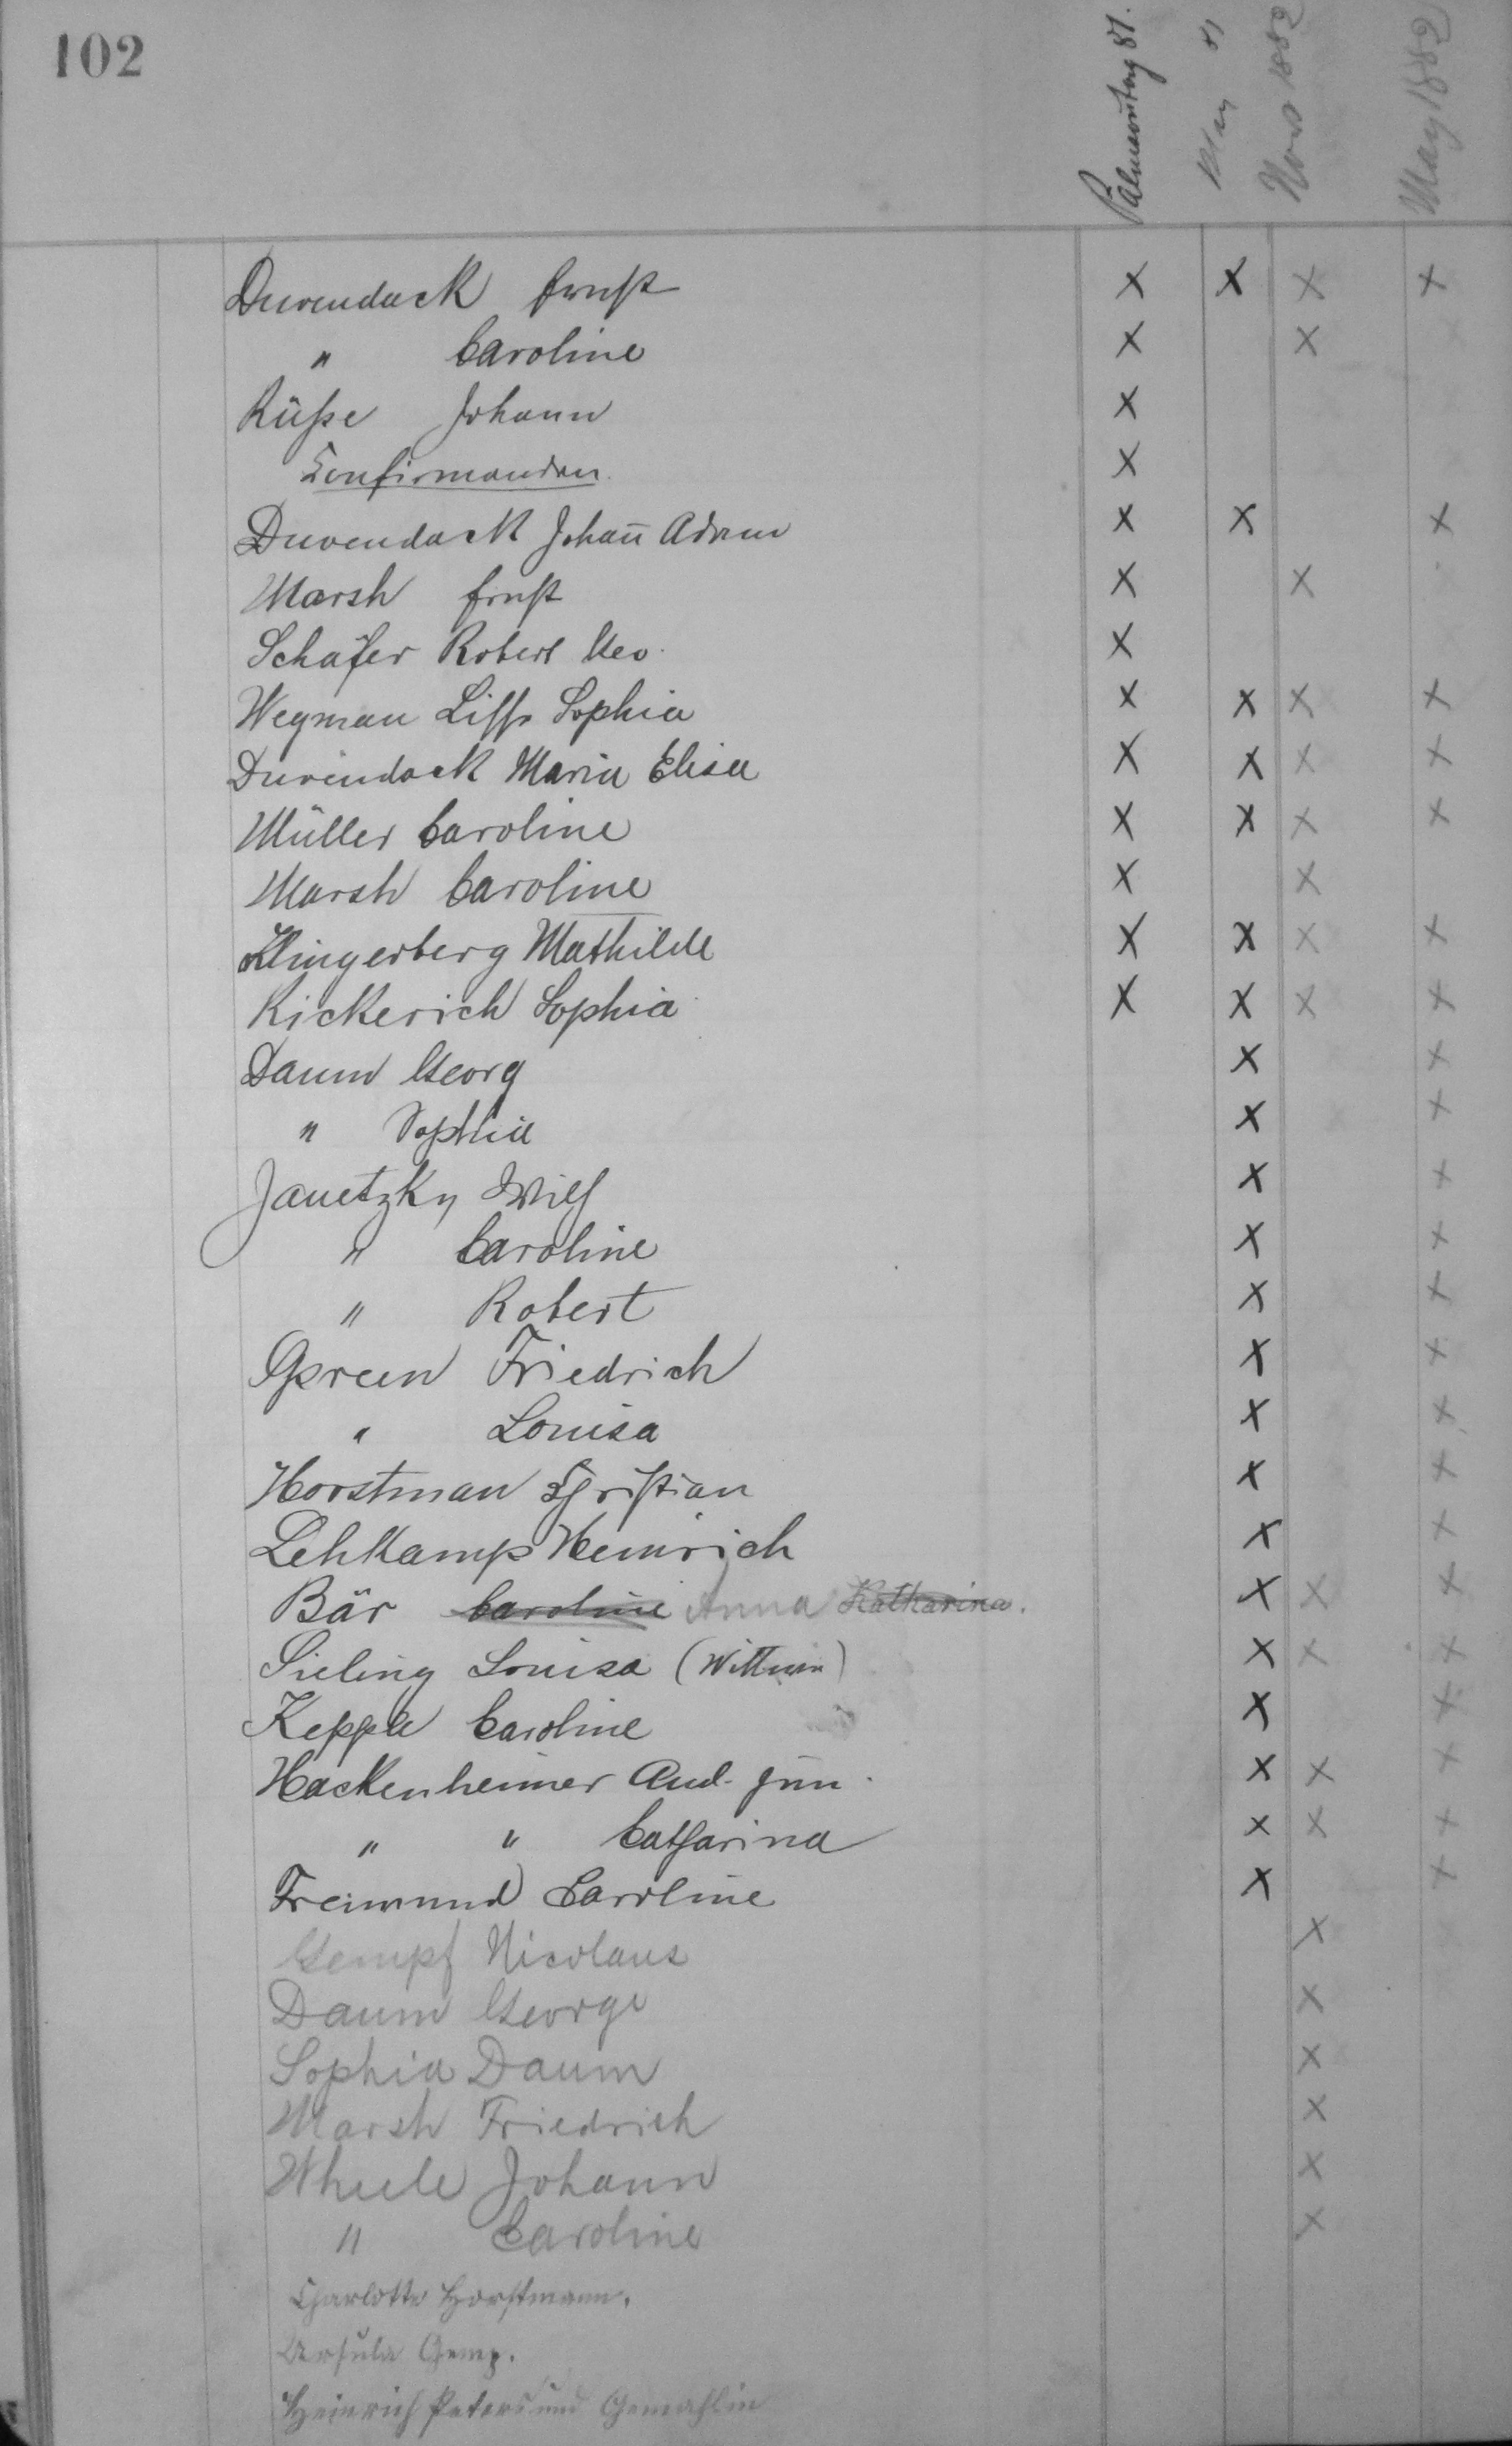 102
Palmsontag 81. May 81 Nov 1882 May 1882
Duvendack Ernst X X X X
" Caroline X X
Rüße Johann X
Confirmanden. X
Duvendack Johan̄ Adam X X X
Marsh Ernst X X
Schäfer Robert Geo. X
Wegman Sophia X X X X
Duvendack Maria Elisa X X X X
Müller Caroline X X X X
Marsh Caroline X X
Klingerberg Mathilde X X X X
Rickerich Sophia X X X X
Daum Georg X X
" Sophia X X
Janetzky Wilh X X
" Caroline X X
" Robert X X
Green Friedrich X X
" Louisa X X
Horstman Christian X X
Lehkamp Heinrich X X
Bär Caroline Anna Katharina. X X X
Sieling Louisa (Wittwin) X X X
Kepple Caroline X X
Hackenheimer And. jun. X X X
" " Catharina X X X
Freimund Caroline X X
Gempf Nicolaus X
Daum George X
Sophia Daum X
Marsh Friedrich X
Wheele Johann X
" Caroline X
Charlotte Horstmann.
Ursula Gemp.
Heinrich Peters und Gemahlin